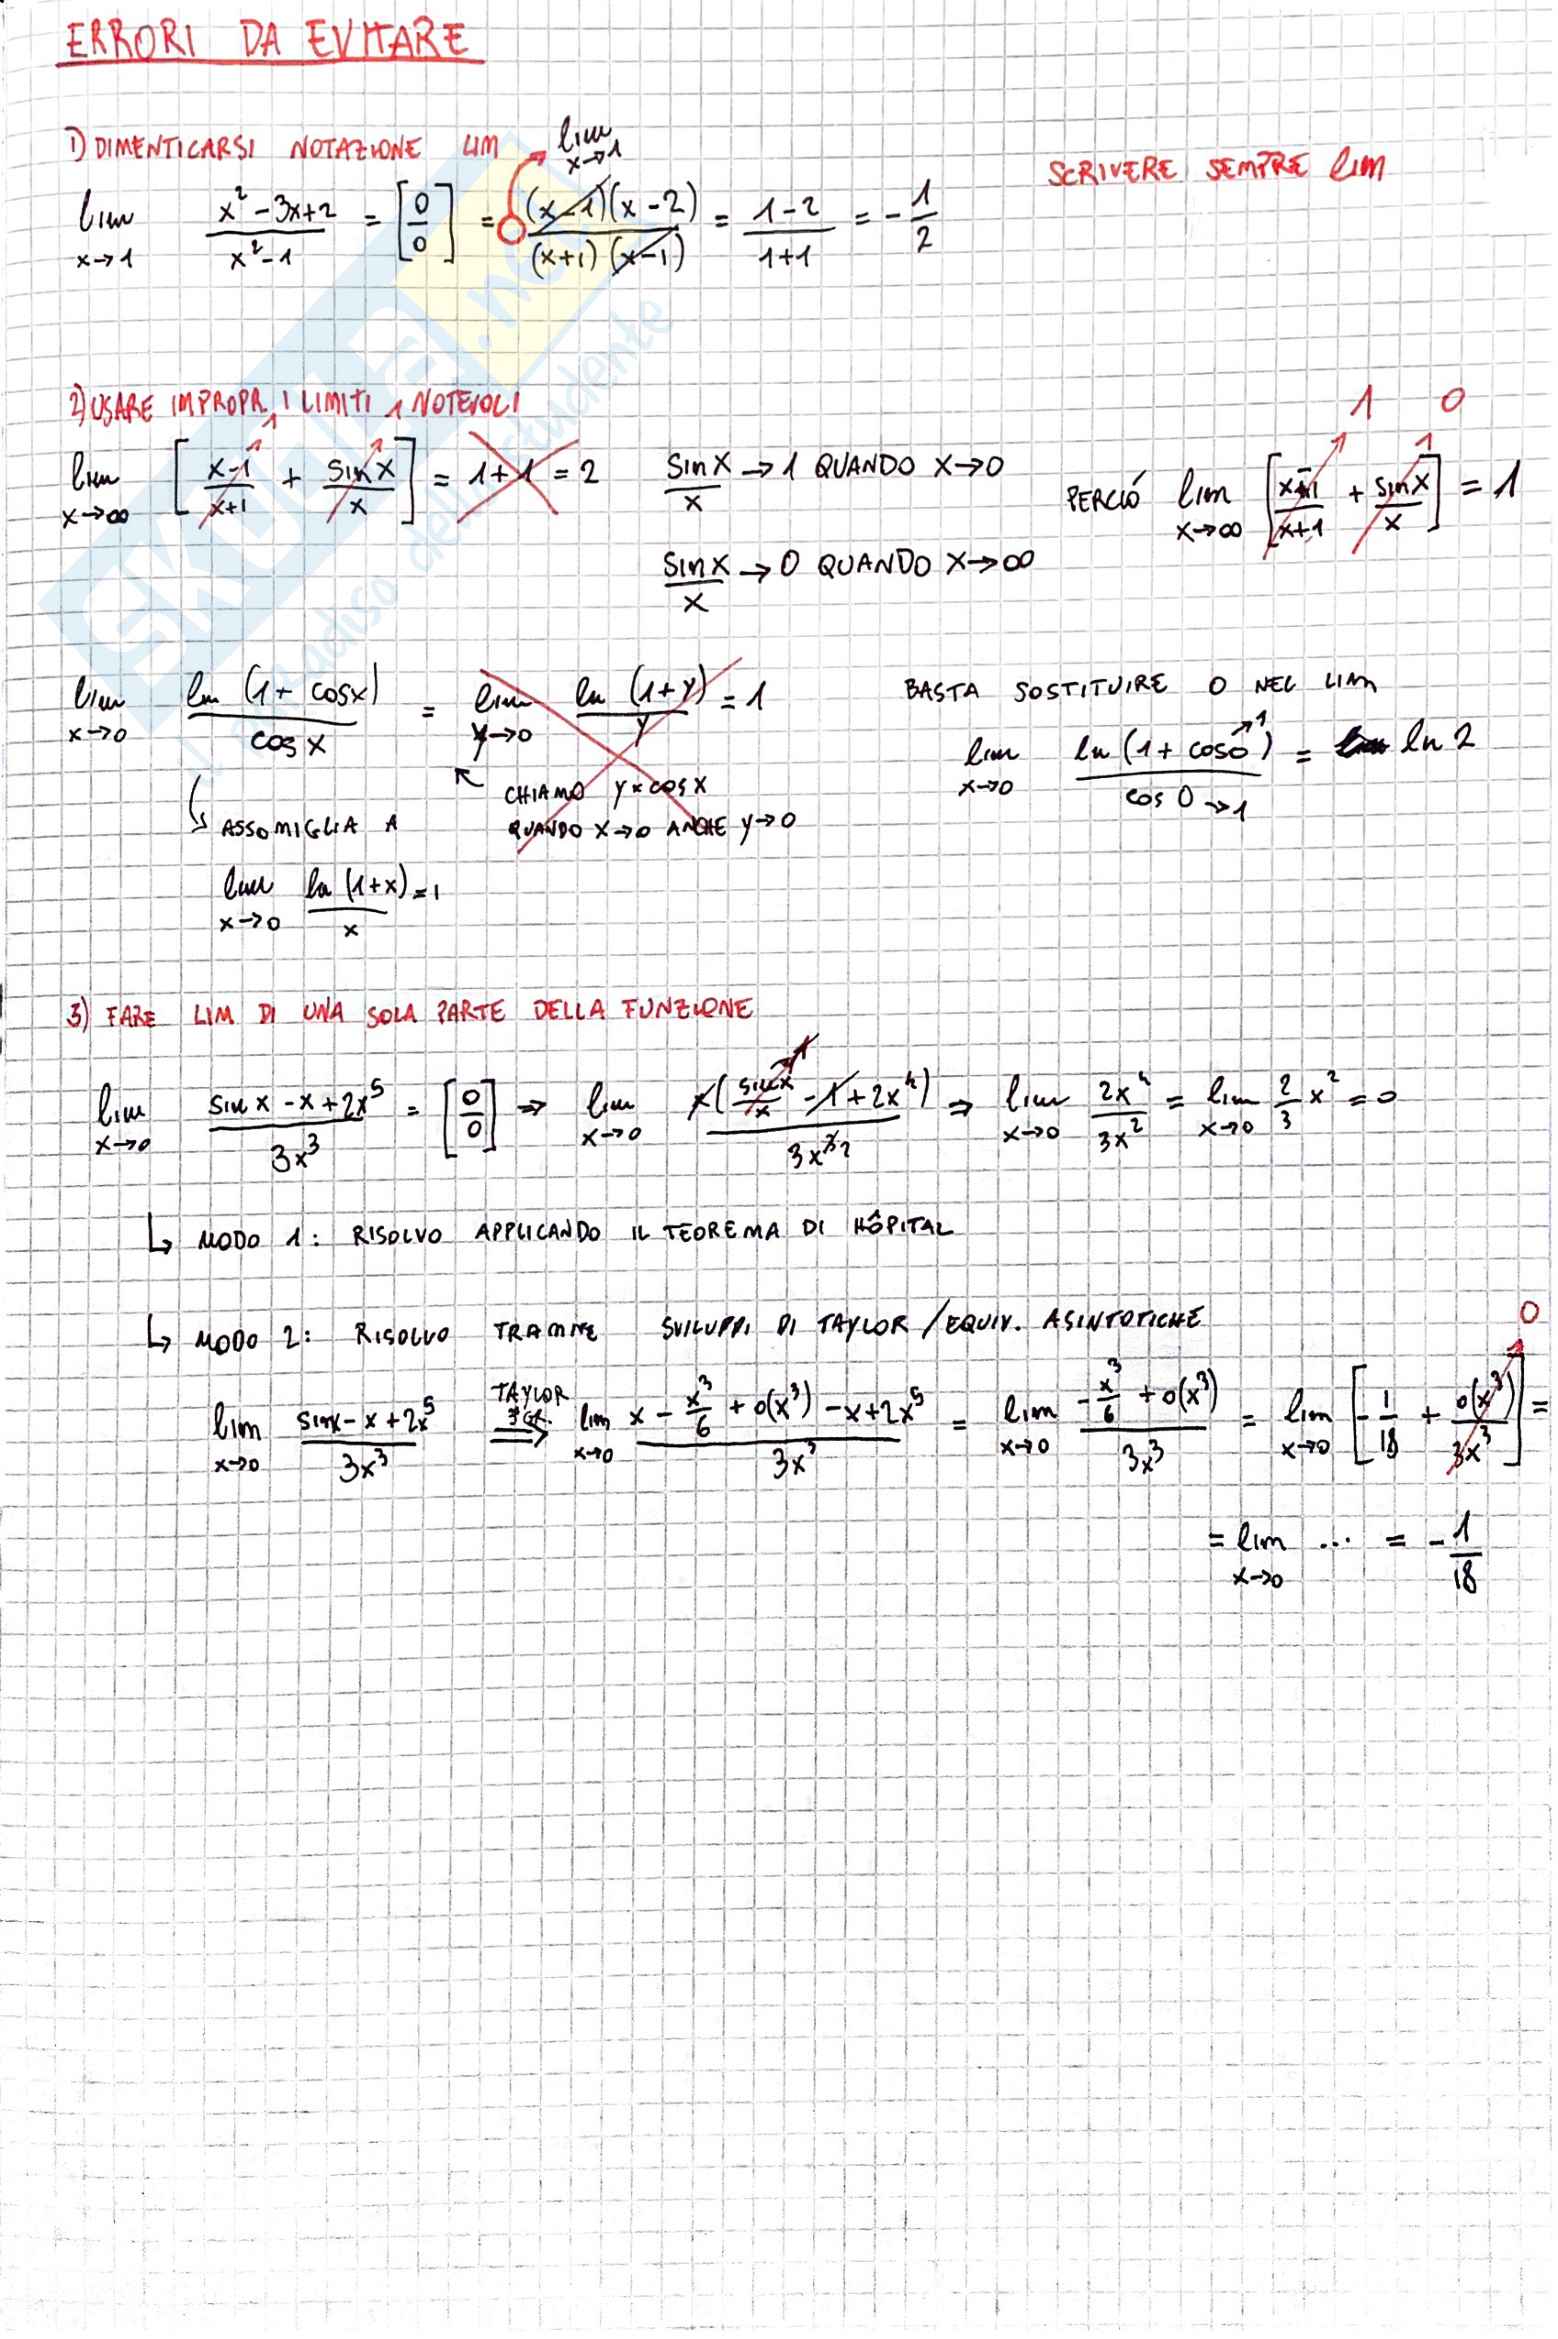 ERRORI DA EVITARE
1) DIMENTICARSI NOTAZIONE LIM lim x→1
SCRIVERE SEMPRE lim
lim x→1 (x² - 3x + 2)/(x² - 1) = [0/0] = (x-1)(x-2)/(x+1)(x-1) = (1-2)/(1+1) = -1/2
2) USARE IMPROPR. I LIMITI NOTEVOLI
lim x→∞ [(x-1)/(x+1) → 1 + sin x/x → 1] = 1+1 = 2
sin x/x → 1 QUANDO x→0
sin x/x → 0 QUANDO x→∞
PERCIÓ lim x→∞ [(x-1)/(x+1) → 1 + sin x/x → 0] = 1
lim x→0 ln(1 + cos x)/cos x = lim y→0 ln(1+y)/y = 1
CHIAMO y = cos x
QUANDO x→0 ANCHE y→0
ASSOMIGLIA A
lim x→0 ln(1+x)/x = 1
BASTA SOSTITUIRE 0 NEL LIM
lim x→0 ln(1 + cos 0 → 1)/(cos 0 → 1) = ln 2
3) FARE LIM DI UNA SOLA PARTE DELLA FUNZIONE
lim x→0 (sin x - x + 2x⁵)/3x³ = [0/0] ⇒ lim x→0 x(sin x/x → 1 - 1 + 2x⁴)/3x² ⇒ lim x→0 2x⁴/3x² = lim x→0 2/3 x² = 0
↳ MODO 1: RISOLVO APPLICANDO IL TEOREMA DI HÔPITAL
↳ MODO 2: RISOLVO TRAMITE SVILUPPI DI TAYLOR / EQUIV. ASINTOTICHE
lim x→0 (sin x - x + 2x⁵)/3x³ TAYLOR 3° GR. ⇒ lim x→0 (x - x³/6 + o(x³) - x + 2x⁵)/3x³ = lim x→0 (-x³/6 + o(x³))/3x³ = lim x→0 [-1/18 + o(x³)/3x³ → 0] =
= lim x→0 ... = -1/18
SKUOLA.net
il paradiso dello studente